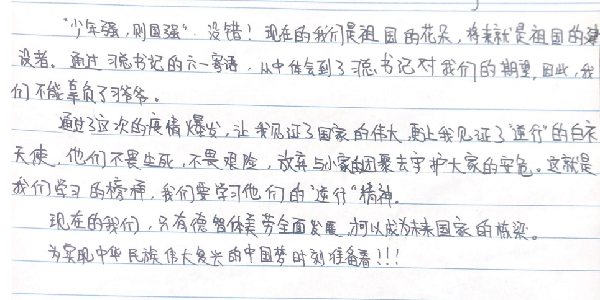 “少年强,则国强”,没错!现在的我们是祖国的花朵,将来就是祖国的建
设者。通过习总书记的六一寄语,从中体会到了习总书记对我们的期望,因此,我
们不能辜负了习爷爷。
通过了这次的疫情爆发,让我见证了国家的伟大,更让我见证了“逆行”的白衣
天使,他们不畏生死,不畏艰险,放弃与小家的团聚去守护大家的安危。这就是
我们学习的榜样,我们要学习他们的“逆行”精神。
现在的我们,只有德智体美劳全面发展,才可以成为未来国家的栋梁。
为实现中华民族伟大复兴的中国梦时刻准备着!!!